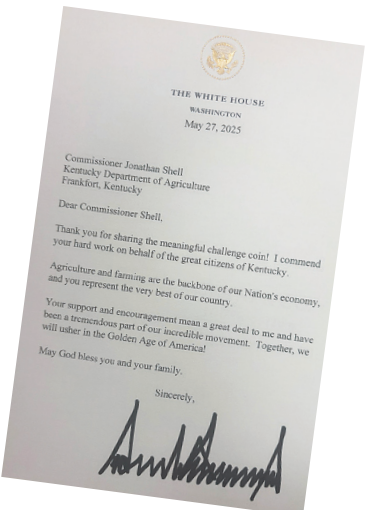 THE WHITE HOUSE
WASHINGTON
May 27, 2025
Commissioner Jonathan Shell
Kentucky Department of Agriculture
Frankfort, Kentucky
Dear Commissioner Shell,
Thank you for sharing the meaningful challenge coin! I commend
your hard work on behalf of the great citizens of Kentucky.
Agriculture and farming are the backbone of our Nation's economy,
and you represent the very best of our country.
Your support and encouragement mean a great deal to me and have
been a tremendous part of our incredible movement. Together, we
will usher in the Golden Age of America!
May God bless you and your family.
Sincerely,